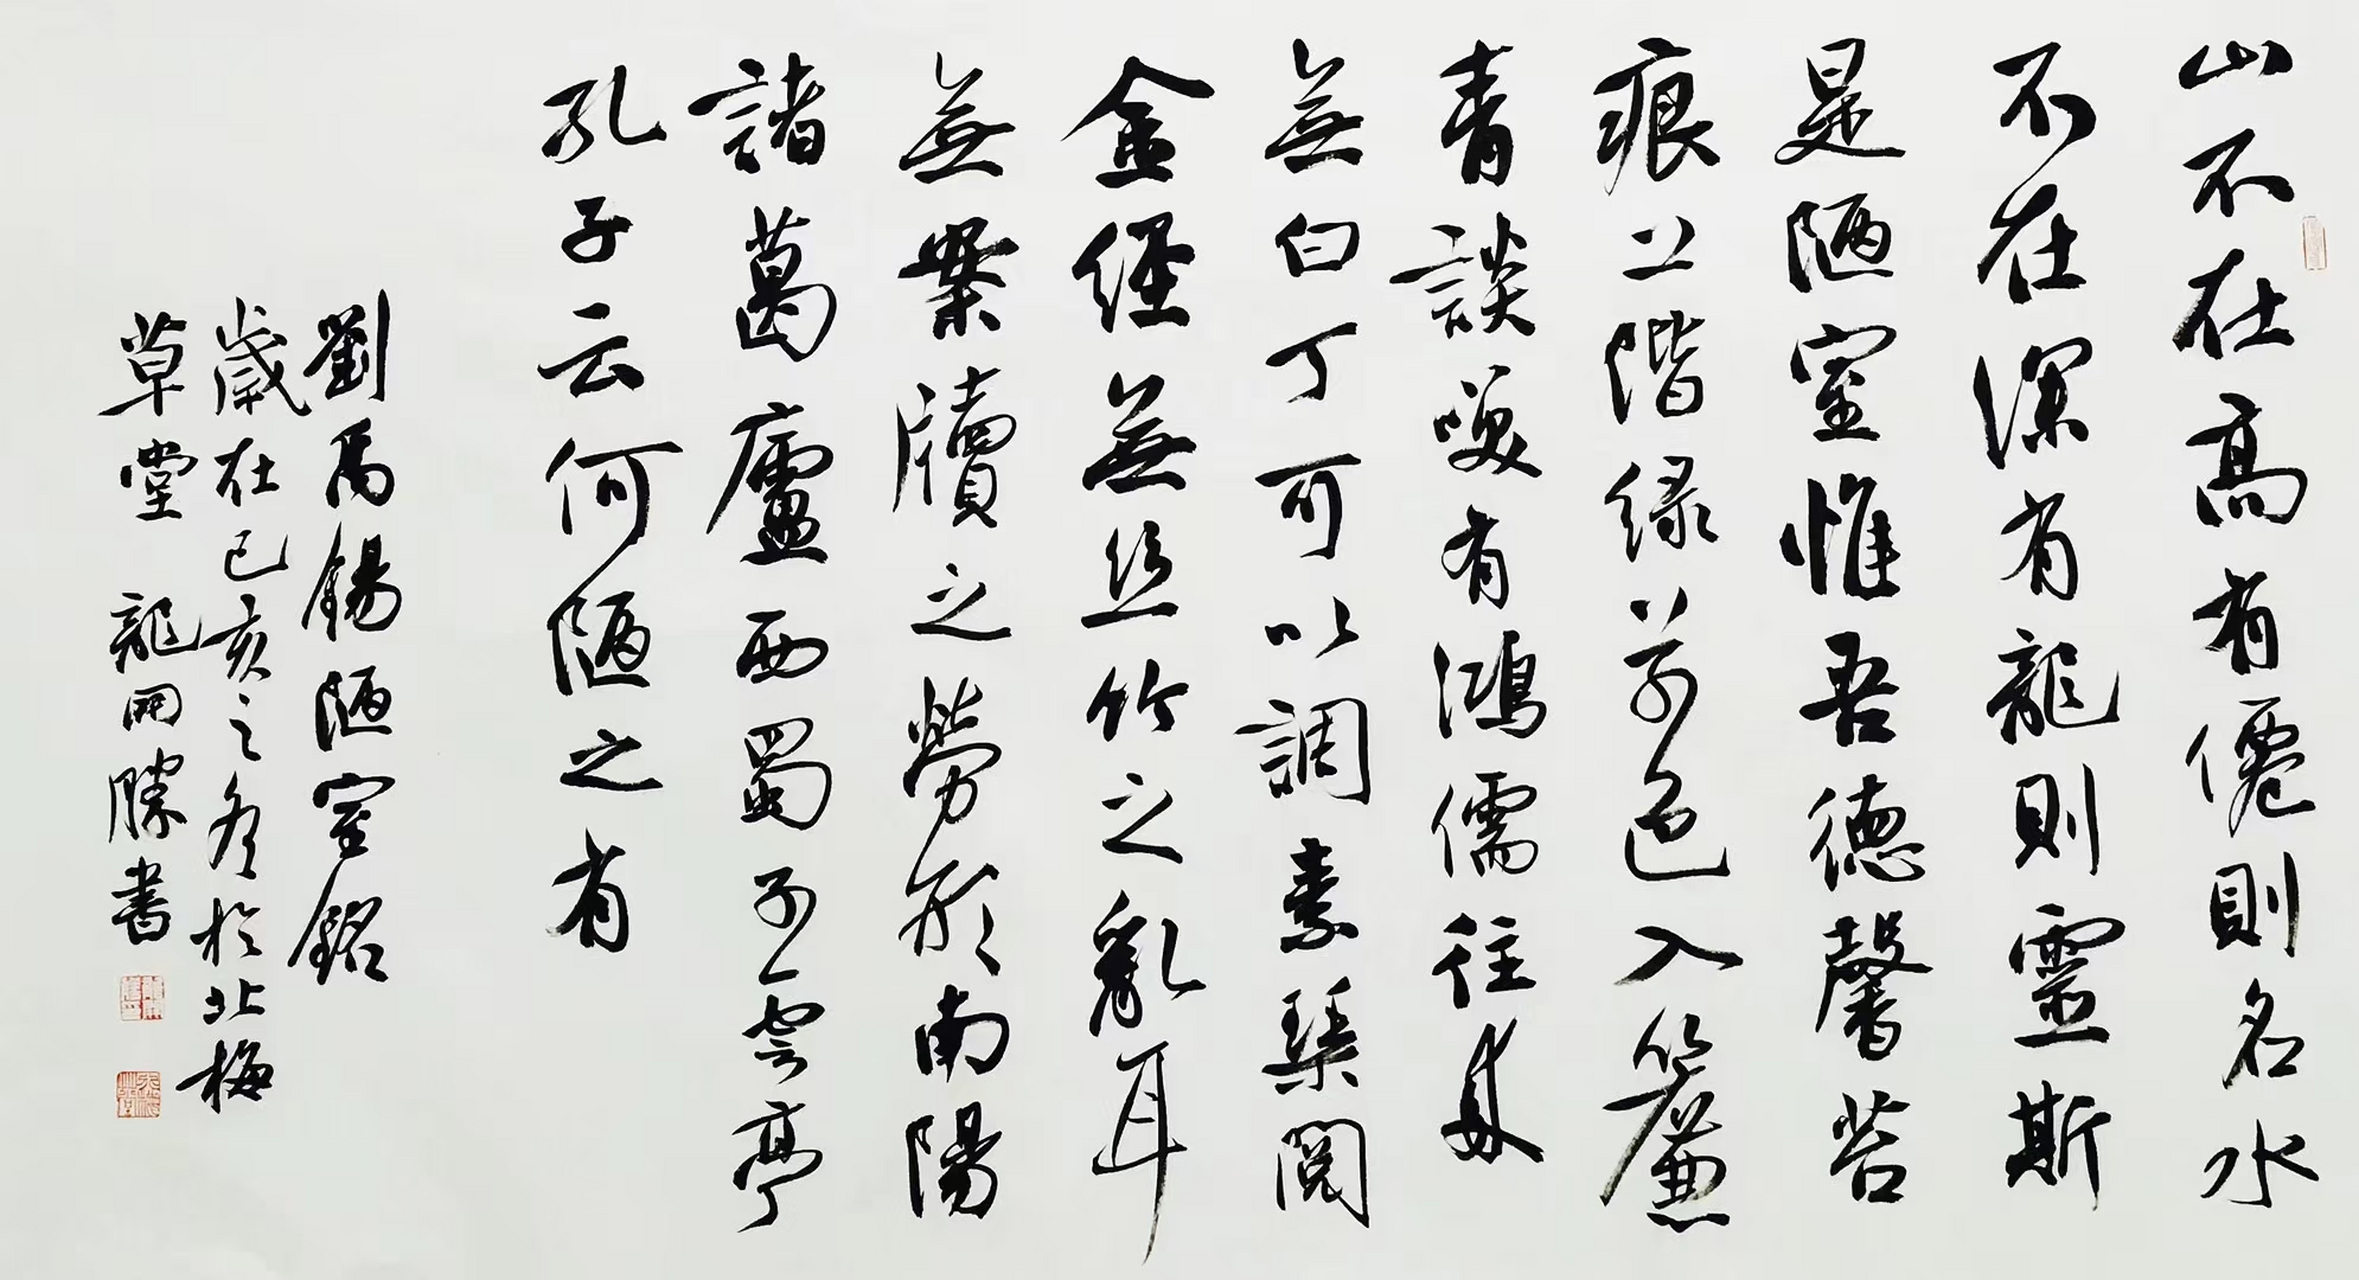 山不在高有僊則名水
不在深有龍則靈斯
是陋室惟吾德馨苔
痕上階绿草色入簾
青談笑有鴻儒往来
無白丁可以調素琴閱
金經無丝竹之亂耳
無案牘之勞形南陽
諸葛廬西蜀子雲亭
孔子云何陋之有
劉禹錫陋室銘
歲在己亥之冬於北梅
草堂 龍開勝書